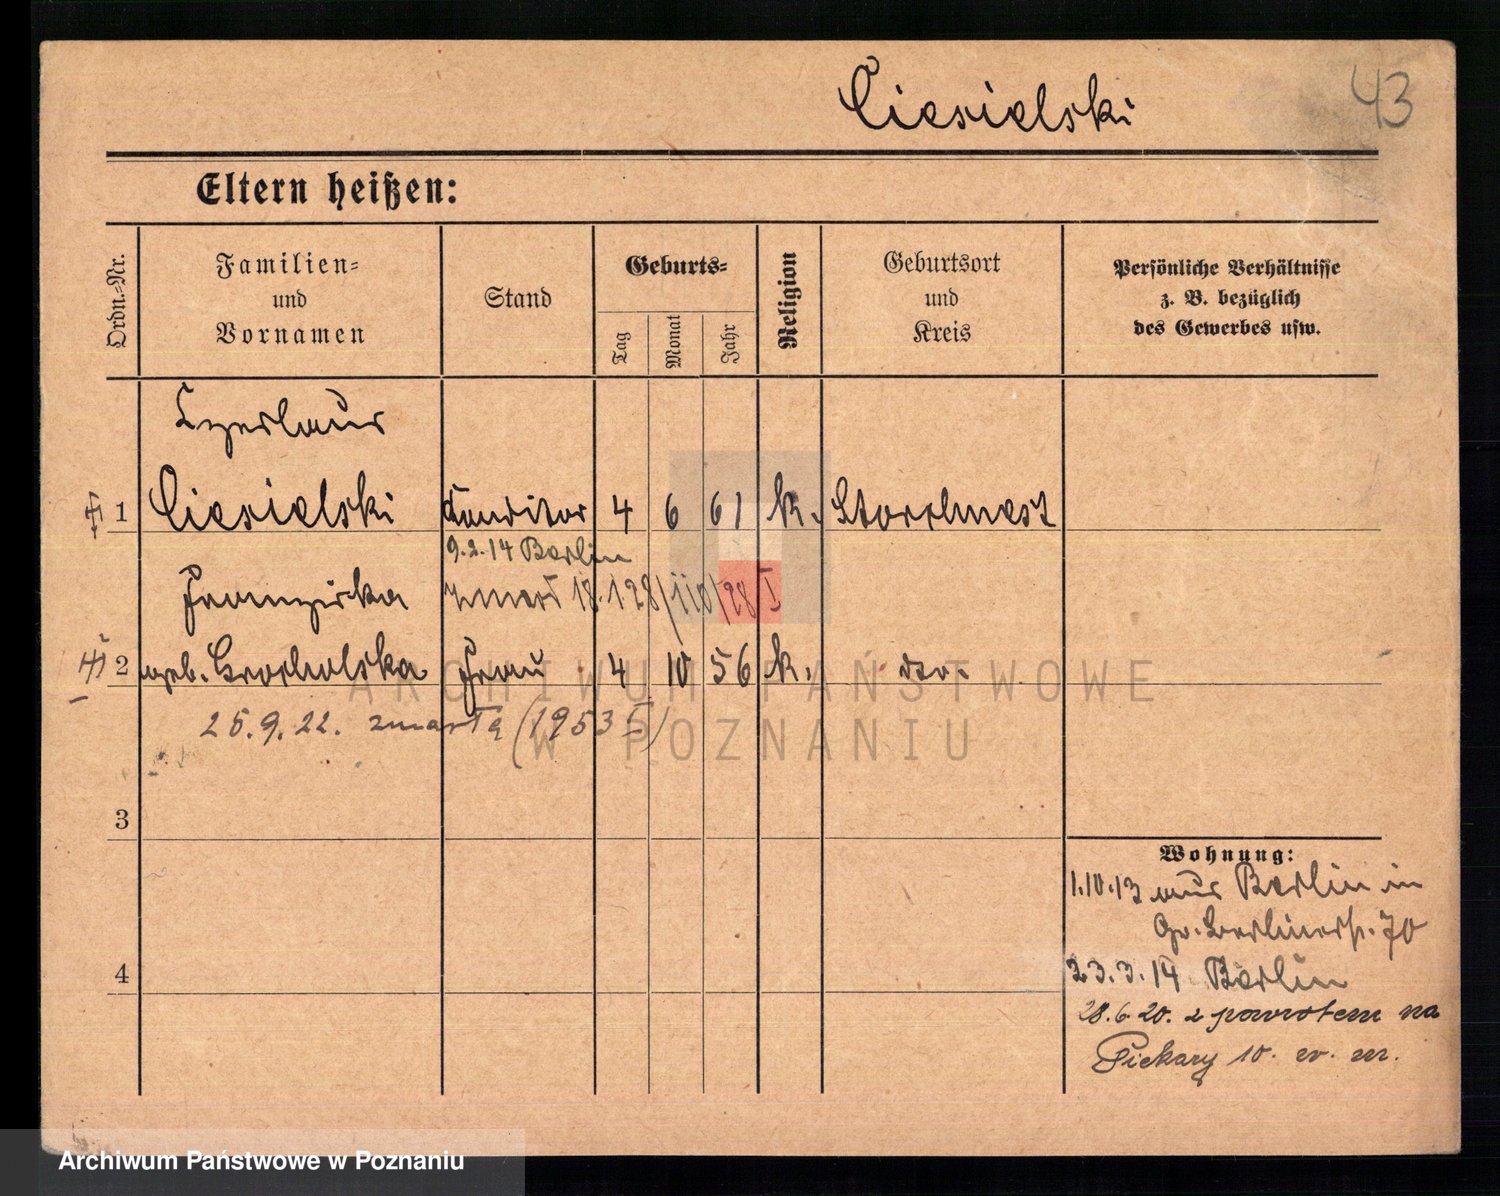 Ciesielski 43
Eltern heißen:
Ordn.=Nr.
Familien=
und
Vornamen
Stand
Geburts=
Tag
Monat
Jahr
Religion
Geburtsort
und
Kreis
Persönliche Verhältnisse
z. B. bezüglich
des Gewerbes usw.
1 Ciesielski Konditor 4 6 61 k. Storchnest
9.2.14 Berlin
Franziska zmarł 18.1 28/110/28 I
2 geb. Grocholska Frau 4 10 56 k. do.
25.9.22. zmarła (1953 I)
3
4
Wohnung:
1.10.13 aus Berlin in
Gr. Berlinerstr. 70
23.3.14 Berlin
28.6.20. z powrotem na
Piekary 10. w. m.
ARCHIWUM PAŃSTWOWE
W POZNANIU
Archiwum Państwowe w Poznaniu